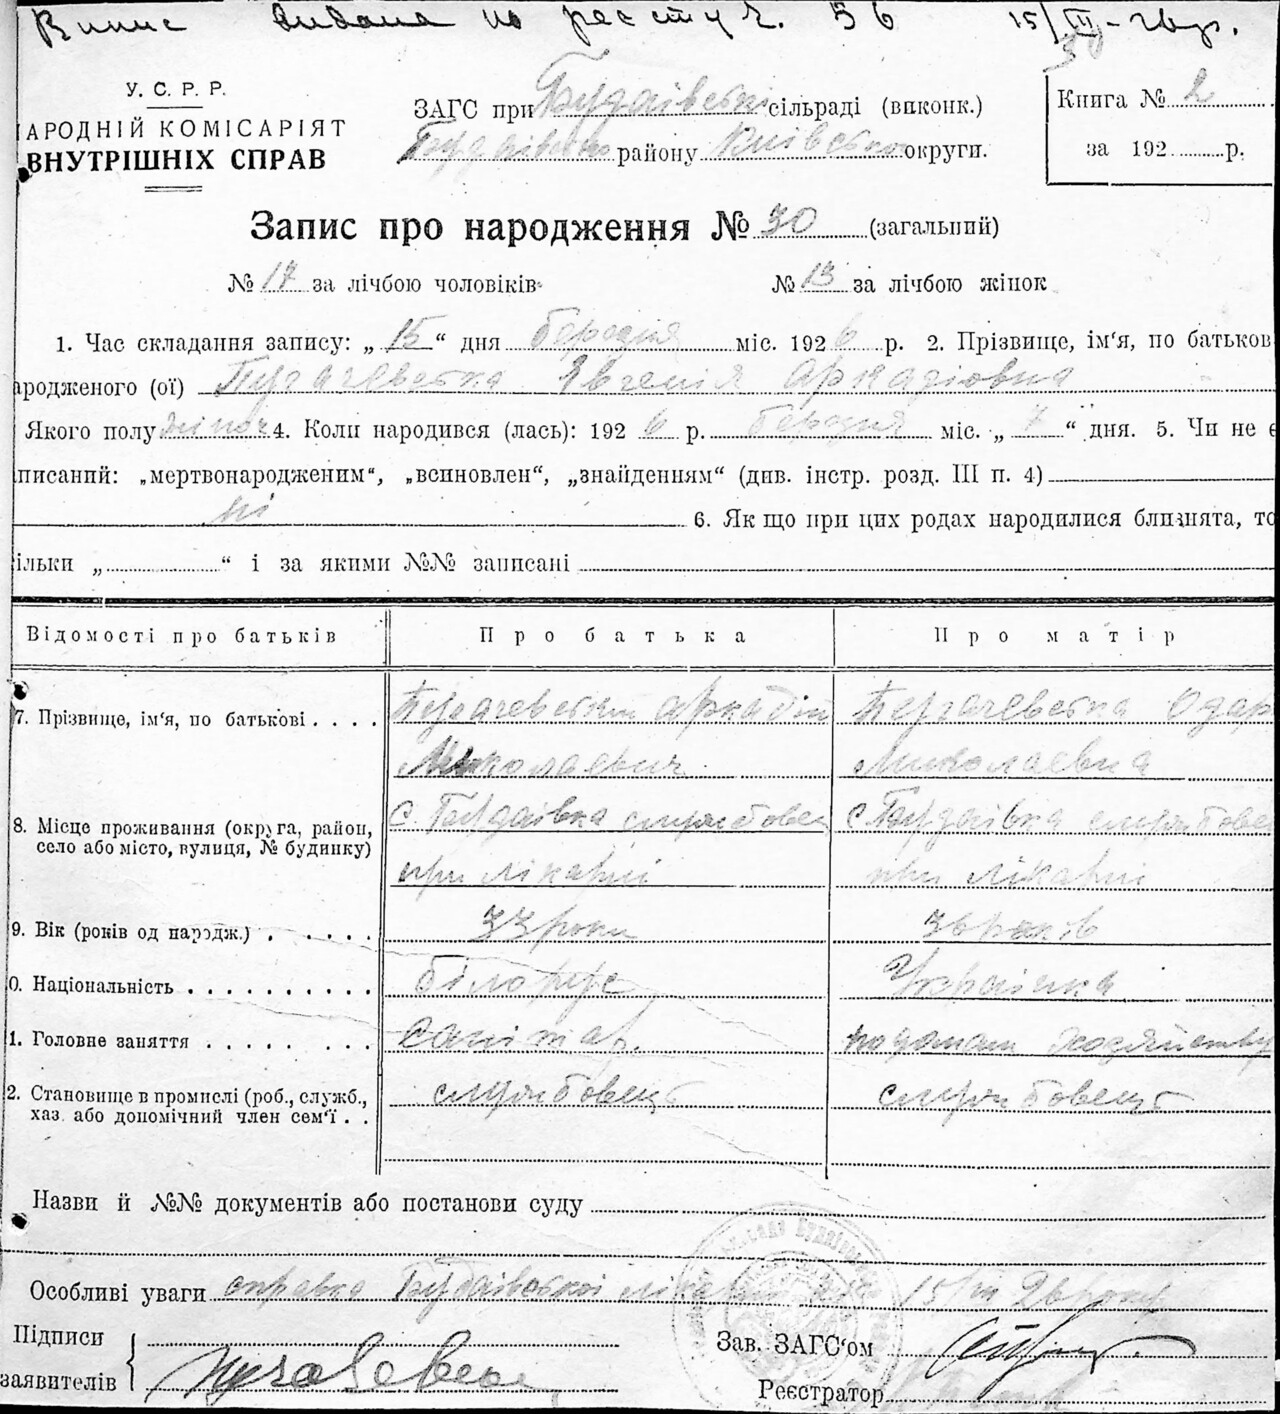 Випис видана по реєстру ч. 56 15/III-26р.
У. С. Р. Р.
АРОДНІЙ КОМІСАРІЯТ
ВНУТРІШНІХ СПРАВ
ЗАГС при Будаівські сільраді (виконк.)
Будаівсько району Київсько округи.
Книга № 2
за 192 р.
Запис про народження № 30 (загальний)
№ 17 за лічбою чоловіків № 13 за лічбою жінок
1. Час складання запису: „ 15 “ дня березня міс. 1926 р. 2. Прізвище, ім‘я, по батьков
ародженого (ої) Пугачевська Явгенія Аркадіовна
Якого полу жіноч 4. Коли народився (лась): 1926 р. березня міс. „ 7 “ дня. 5. Чи не є
писаний: „мертвонародженим“, „всиновлен“, „знайденням“ (див. інстр. розд. III п. 4)
ні 6. Як що при цих родах народилися близнята, то
ільки „ “ і за якими №№ записані
Відомості про батьків Про батька Про матір
7. Прізвище, ім‘я, по батькові . . . . Пугачевський Аркадій Пугачевська Одар
Миколаевич Миколаевна
8. Місце проживання (округа, район, село або місто, вулиця, № будинку) с. Будаівка службовец с. Будаівка службовец
при лікарні при лікарні
9. Вік (років од народж.) . . . . . . 33 роки
0. Національність . . . . . . . . . . білорус Українка
1. Головне заняття . . . . . . . . . санітар. по домаш хозяйству
2. Становище в промислі (роб., служб., хаз. або допомічний член сем‘ї . . службовець службовець
Назви й №№ документів або постанови суду
Особливі уваги справка Будаівської лікарні 15/III 26 року
Підписи
заявителів
Зав. ЗАГС‘ом
Реєстратор